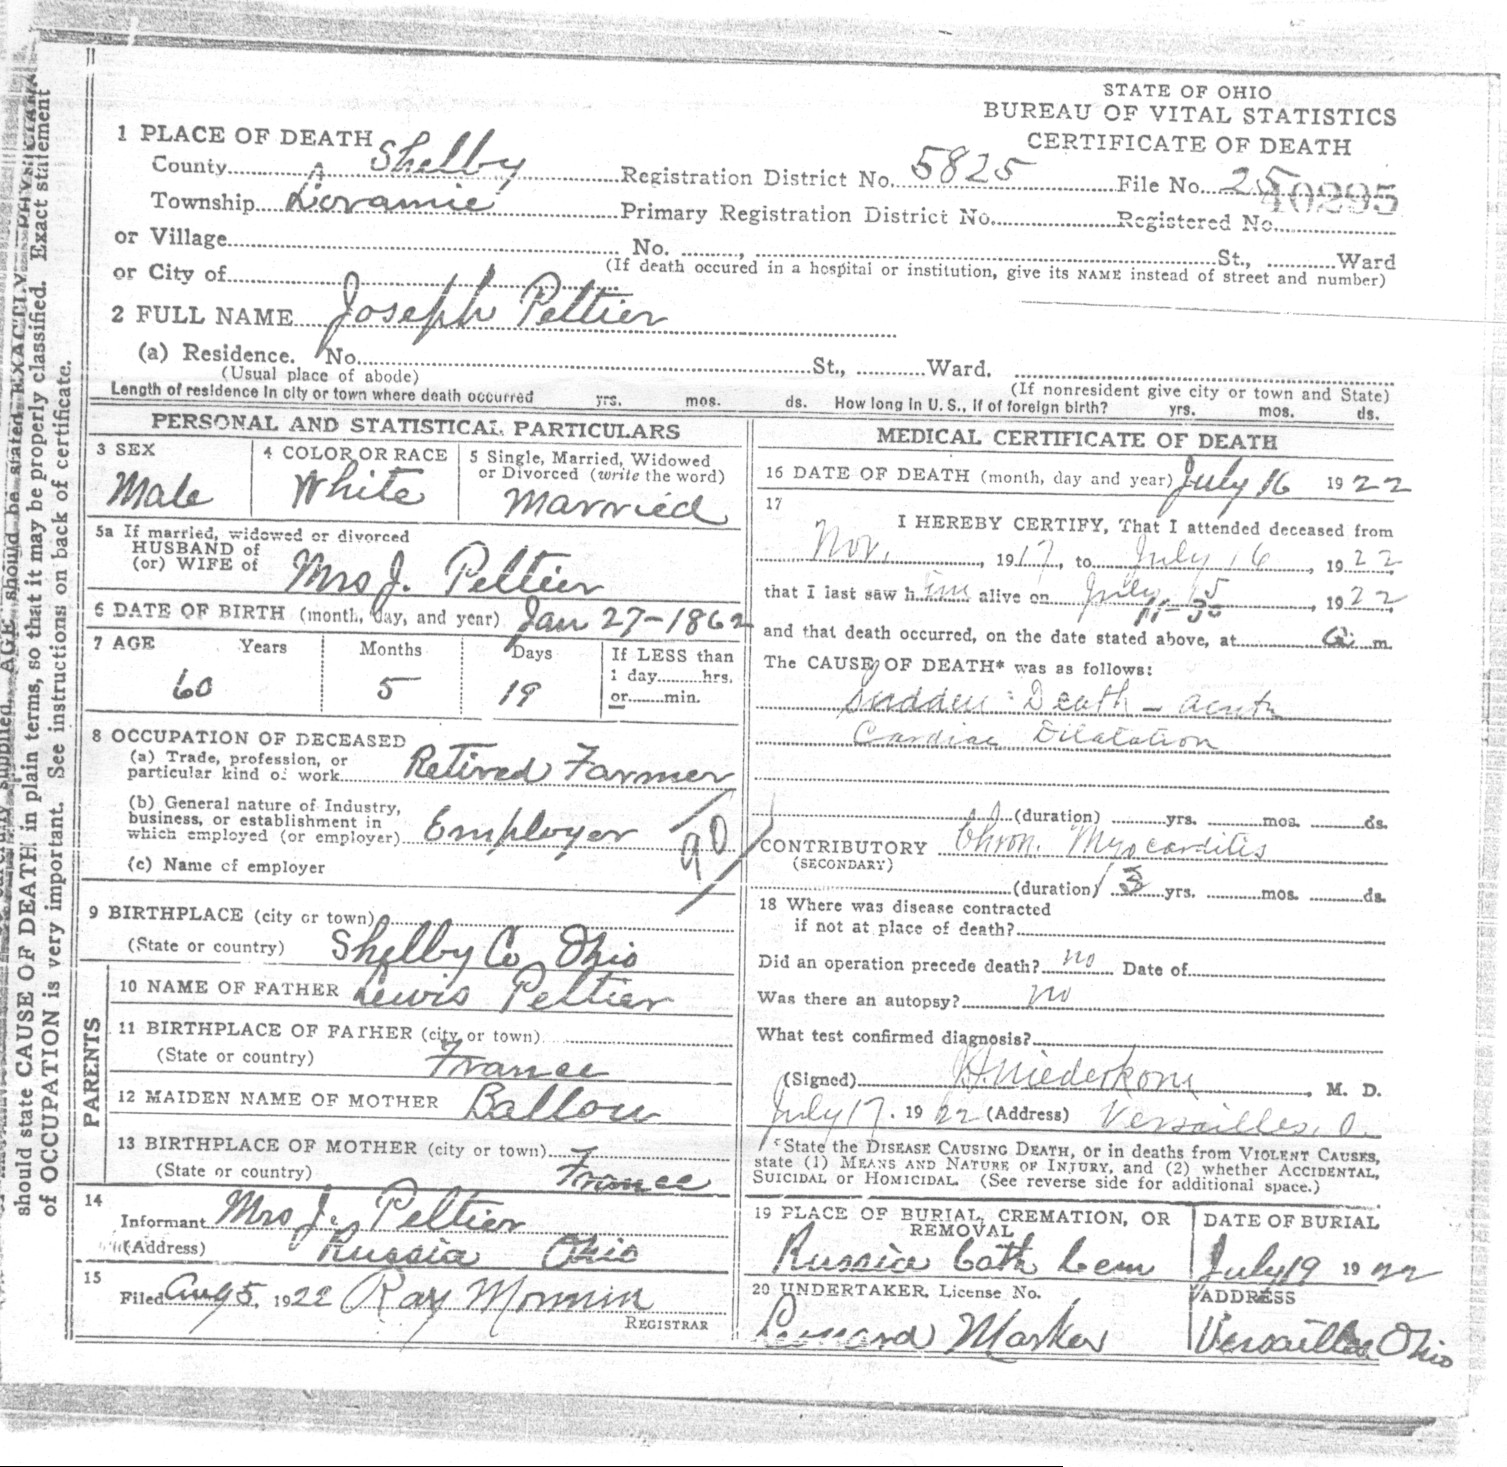 STATE OF OHIO
BUREAU OF VITAL STATISTICS
CERTIFICATE OF DEATH
1 PLACE OF DEATH
County Shelby Registration District No. 5825 File No. 25
40295
Township Loramie Primary Registration District No. Registered No.
or Village No. , St., Ward
or City of (If death occured in a hospital or institution, give its NAME instead of street and number)
2 FULL NAME Joseph Peltier
(a) Residence. No. St., Ward.
(Usual place of abode) (If nonresident give city or town and State)
Length of residence in city or town where death occurred yrs. mos. ds. How long in U. S., if of foreign birth? yrs. mos. ds.
PERSONAL AND STATISTICAL PARTICULARS
3 SEX 4 COLOR OR RACE 5 Single, Married, Widowed
or Divorced (write the word)
Male White Married
5a If married, widowed or divorced
HUSBAND of
(or) WIFE of Mrs J. Peltier
6 DATE OF BIRTH (month, day, and year) Jan 27-1862
7 AGE Years Months Days If LESS than
1 day hrs.
or min.
60 5 19
8 OCCUPATION OF DECEASED
(a) Trade, profession, or
particular kind of work Retired Farmer
(b) General nature of Industry,
business, or establishment in
which employed (or employer) Employer
90
(c) Name of employer
9 BIRTHPLACE (city or town)
(State or country) Shelby Co Ohio
PARENTS
10 NAME OF FATHER Lewis Peltier
11 BIRTHPLACE OF FATHER (city or town)
(State or country) France
12 MAIDEN NAME OF MOTHER Ballou
13 BIRTHPLACE OF MOTHER (city or town)
(State or country) France
14
Informant Mrs J. Peltier
(Address) Russia Ohio
15
Filed Aug 5, 1922 Ray Monnin
REGISTRAR
MEDICAL CERTIFICATE OF DEATH
16 DATE OF DEATH (month, day and year) July 16 1922
17
I HEREBY CERTIFY, That I attended deceased from
Nov. , 1917, to July 16, 1922
that I last saw him alive on July 15, 1922
11-30
and that death occurred, on the date stated above, at a m.
The CAUSE OF DEATH* was as follows:
Sudden Death - acute
Cardiac Dilatation
(duration) yrs. mos. ds.
CONTRIBUTORY Chron. Myocarditis
(SECONDARY)
(duration) 3 yrs. mos. ds.
18 Where was disease contracted
if not at place of death?
Did an operation precede death? no Date of
Was there an autopsy? no
What test confirmed diagnosis?
(Signed) M. D.
July 17. 1922 (Address) Versailles, O.
*State the DISEASE CAUSING DEATH, or in deaths from VIOLENT CAUSES,
state (1) MEANS AND NATURE OF INJURY, and (2) whether ACCIDENTAL,
SUICIDAL OR HOMICIDAL. (See reverse side for additional space.)
19 PLACE OF BURIAL, CREMATION, OR
REMOVAL
Russia Cath Cem
DATE OF BURIAL
July 19 1922
20 UNDERTAKER, License No.
Leonard Marker
ADDRESS
Versailles Ohio
should state CAUSE OF DEATH in plain terms, so that it may be properly classified. Exact statement
of OCCUPATION is very important. See instructions on back of certificate.